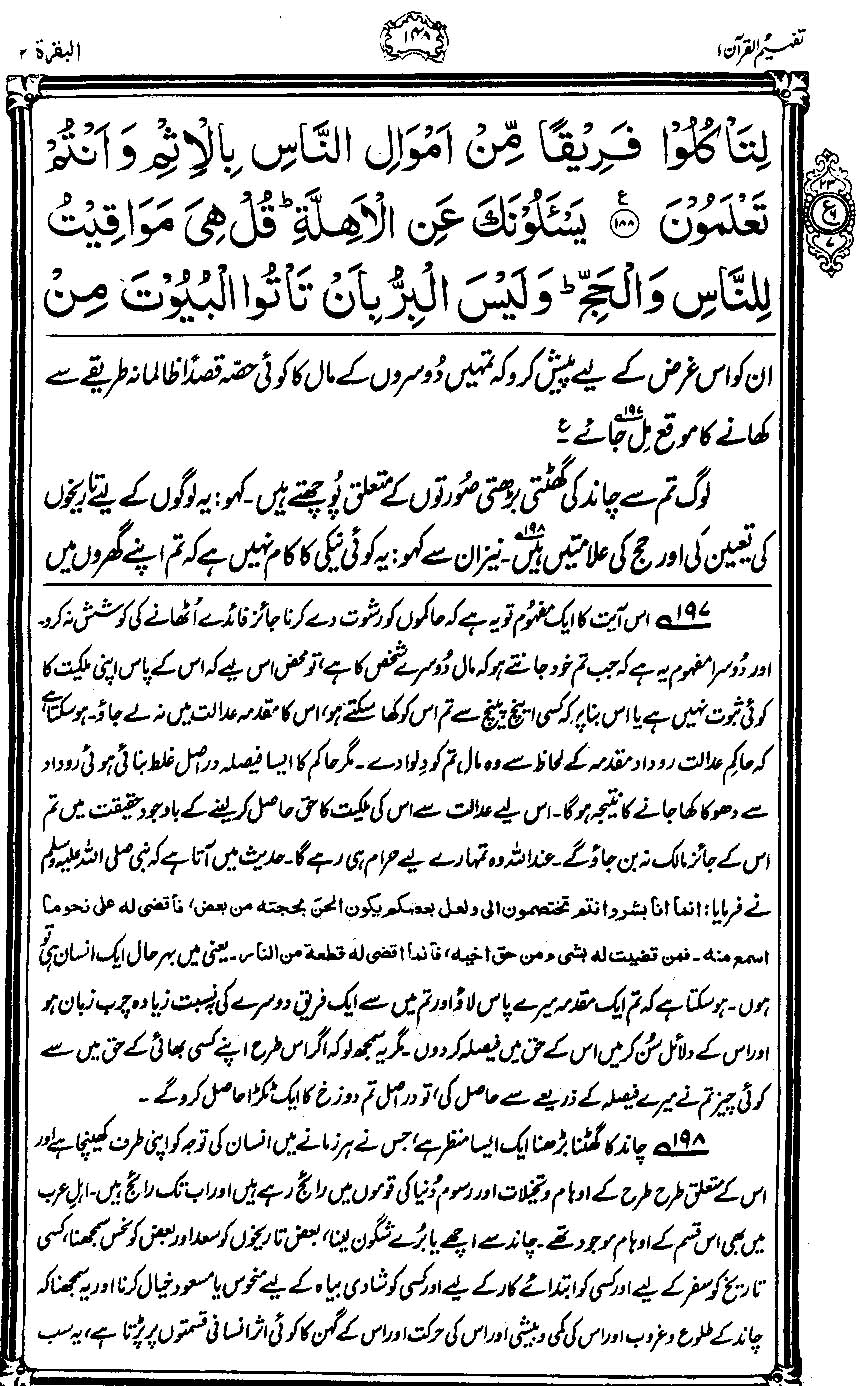 تفہیم القرآن ۱
۱۴۸
البقرۃ ۲
لِتَاۡكُلُوۡا فَرِيۡقًا مِّنۡ اَمۡوَالِ النَّاسِ بِالۡاِثۡمِ وَاَنۡتُمۡ
تَعۡلَمُوۡنَ ﴿۱۸۸﴾ ع يَسۡـَٔلُوۡنَكَ عَنِ الۡاَهِلَّةِ ؕ قُلۡ هِىَ مَوَاقِيۡتُ
لِلنَّاسِ وَالۡحَجِّ ؕ وَلَيۡسَ الۡبِرُّ بِاَنۡ تَاۡتُوا الۡبُيُوۡتَ مِنۡ
۲۳
ع
۷
ان کو اس غرض کے لیے پیش کرو کہ تمہیں دُوسروں کے مال کا کوئی حصّہ قصداً ظالمانہ طریقے سے
کھانے کا موقع مِل جائے ۱۹۷ ع
لوگ تم سے چاند کی گھٹتی بڑھتی صُورتوں کے متعلق پُوچھتے ہیں۔ کہو: یہ لوگوں کے لیے تاریخوں
کی تعیین کی اور حج کی علامتیں ہیں ۱۹۸۔ نیز ان سے کہو: یہ کوئی نیکی کا کام نہیں ہے کہ تم اپنے گھروں میں
۱۹۷ اس آیت کا ایک مفہُوم تو یہ ہے کہ حاکموں کو رشوت دے کر ناجائز فائدے اُٹھانے کی کوشش نہ کرو۔
اور دُوسرا مفہوم یہ ہے کہ جب تم خود جانتے ہو کہ مال دُوسرے شخص کا ہے، تو محض اس لیے کہ اس کے پاس اپنی ملکیت کا
کوئی ثبوت نہیں ہے یا اس بنا پر کہ کسی اینچ پینچ سے تم اس کو کھا سکتے ہو، اس کا مقدمہ عدالت میں نہ لے جاؤ۔ ہو سکتا ہے
کہ حاکمِ عدالت رودادِ مقدمہ کے لحاظ سے وہ مال تم کو دِلوا دے۔ مگر حاکم کا ایسا فیصلہ دراصل غلط بنائی ہوئی روداد
سے دھوکا کھا جانے کا نتیجہ ہو گا۔ اس لیے عدالت سے اس کی ملکیت کا حق حاصل کر لینے کے باوجود حقیقت میں تم
اس کے جائز مالک نہ بن جاؤ گے۔ عند اللہ وہ تمہارے لیے حرام ہی رہے گا۔ حدیث میں آتا ہے کہ نبی صلی اللہ علیہ وسلم
نے فرمایا: انما انا بشر و انتم تختصمون الی و لعل بعضکم یکون الحن بحجتہ من بعض، فاقضی لہ علی نحو ما
اسمع منہ۔ فمن قضیت لہ بشیء من حق اخیہ، فانما اقضی لہ قطعۃ من النار۔ یعنی میں بہرحال ایک انسان ہی تو
ہوں۔ ہو سکتا ہے کہ تم ایک مقدمہ میرے پاس لاؤ اور تم میں سے ایک فریق دوسرے کی نسبت زیادہ چرب زبان ہو
اور اس کے دلائل سُن کر میں اس کے حق میں فیصلہ کر دوں۔ مگر یہ سمجھ لو کہ اگر اس طرح اپنے کسی بھائی کے حق میں سے
کوئی چیز تم نے میرے فیصلہ کے ذریعے سے حاصل کی، تو دراصل تم دوزخ کا ایک ٹکڑا حاصل کرو گے۔
۱۹۸ چاند کا گھٹنا بڑھنا ایک ایسا منظر ہے، جس نے ہر زمانے میں انسان کی توجہ کو اپنی طرف کھینچا ہے اور
اس کے متعلق طرح طرح کے اوہام و تخیلات اور رسوم دُنیا کی قوموں میں رائج رہے ہیں اور اب تک رائج ہیں۔ اہلِ عرب
میں بھی اس قسم کے اوہام موجود تھے۔ چاند سے اچھے یا بُرے شگون لینا، بعض تاریخوں کو سعد اور بعض کو نحس سمجھنا، کسی
تاریخ کو سفر کے لیے اور کسی کو ابتدائے کار کے لیے اور کسی کو شادی بیاہ کے لیے منحوس یا مسعود خیال کرنا اور یہ سمجھنا کہ
چاند کے طلوع و غروب اور اس کی کمی و بیشی اور اس کی حرکت اور اس کے گہن کا کوئی اثر انسانی قسمتوں پر پڑتا ہے، یہ سب